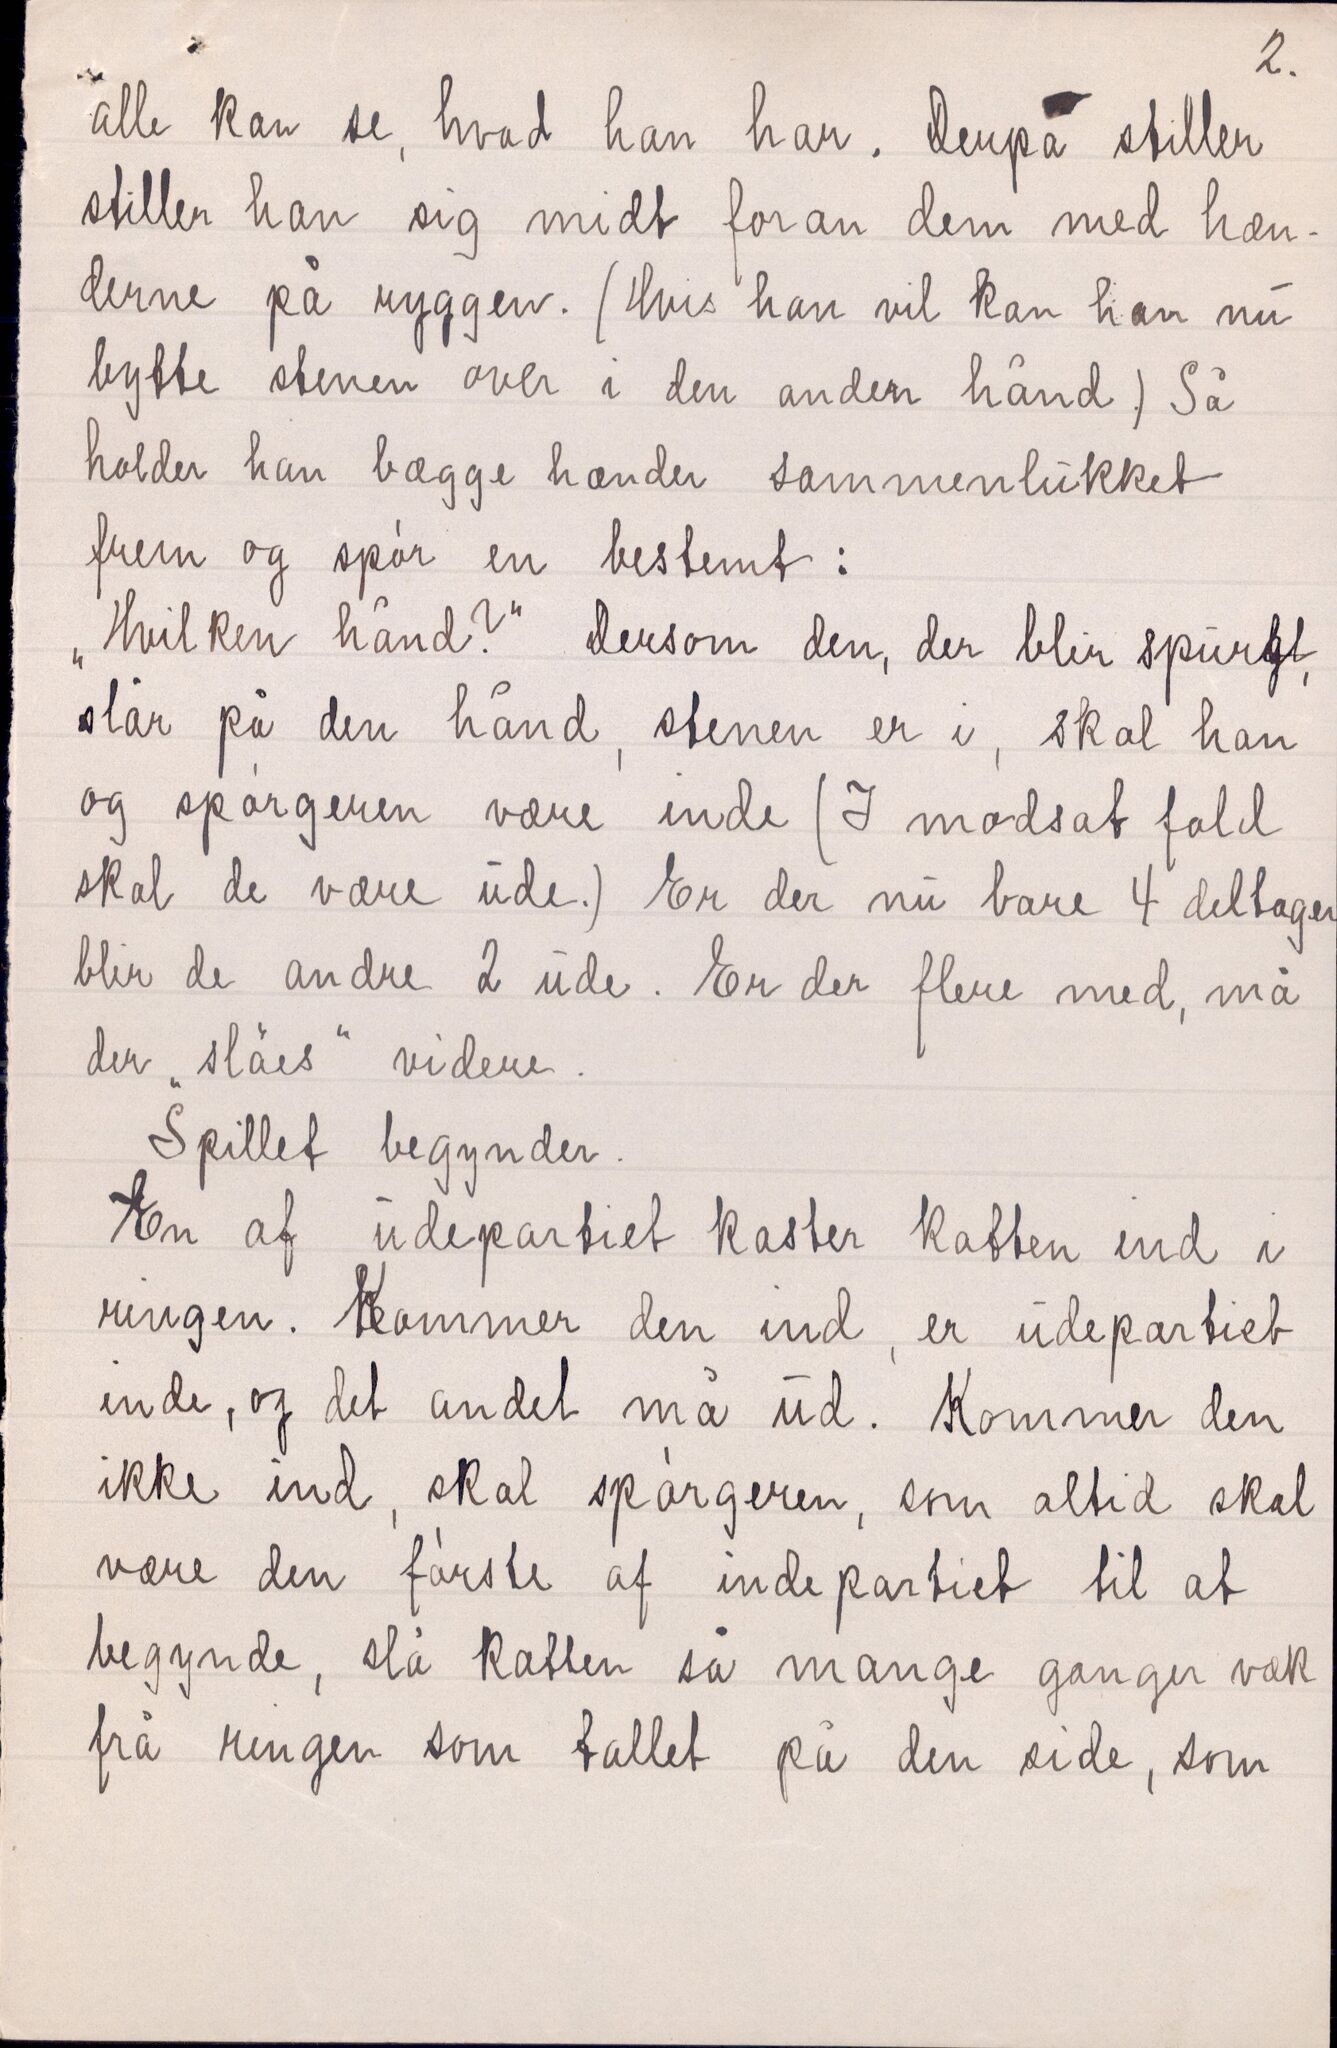 2.
alle kan se, hvad han har. Derpå stiller
stiller han sig midt foran dem med hæn-
derne på ryggen. (Hvis han vil kan han nu
bytte stenen over i den anden hånd.) Så
holder han bægge hænder sammenlukket
frem og spór en bestemt:
„Hvilken hånd?“ Dersom den, der blir spurgt,
slår på den hånd, stenen er i, skal han
og spórgeren være inde (I modsat fald
skal de være ude.) Er der nu bare 4 deltager
blir de andre 2 ude. Er der flere med, må
der „slåes“ videre.
Spillet begynder.
En af udepartiet kaster katten ind i
ringen. Kommer den ind, er udepartiet
inde, og det andet må ud. Kommer den
ikke ind, skal spórgeren, som altid skal
være den fórste af indepartiet til at
begynde, slå katten så mange ganger væk
frå ringen som tallet på den side, som